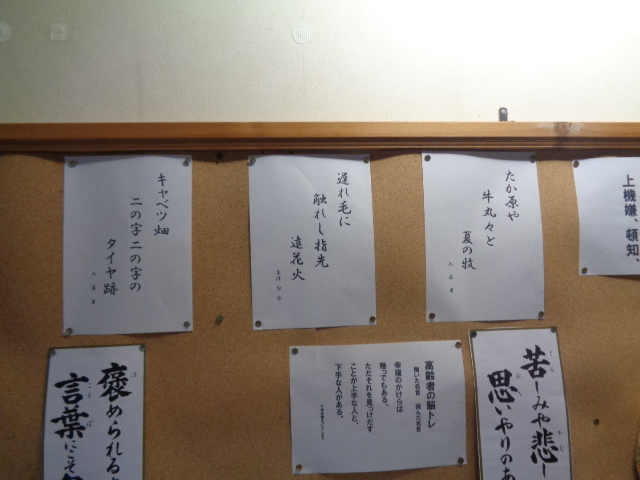 キャベツ畑
二の字二の字の
タイヤ跡
遅れ毛に
触れし指先
遠花火
たか原や
牛丸々と
夏の牧
上機嫌、頓知、
褒められる
言葉にこそ
高齢者の脳トレ
聞いた名言 読んだ名言
幸福のかけらは
幾つでもある。
ただそれを見つけだす
ことが上手な人と、
下手な人がある。
苦しみや悲し
思いやりのあ